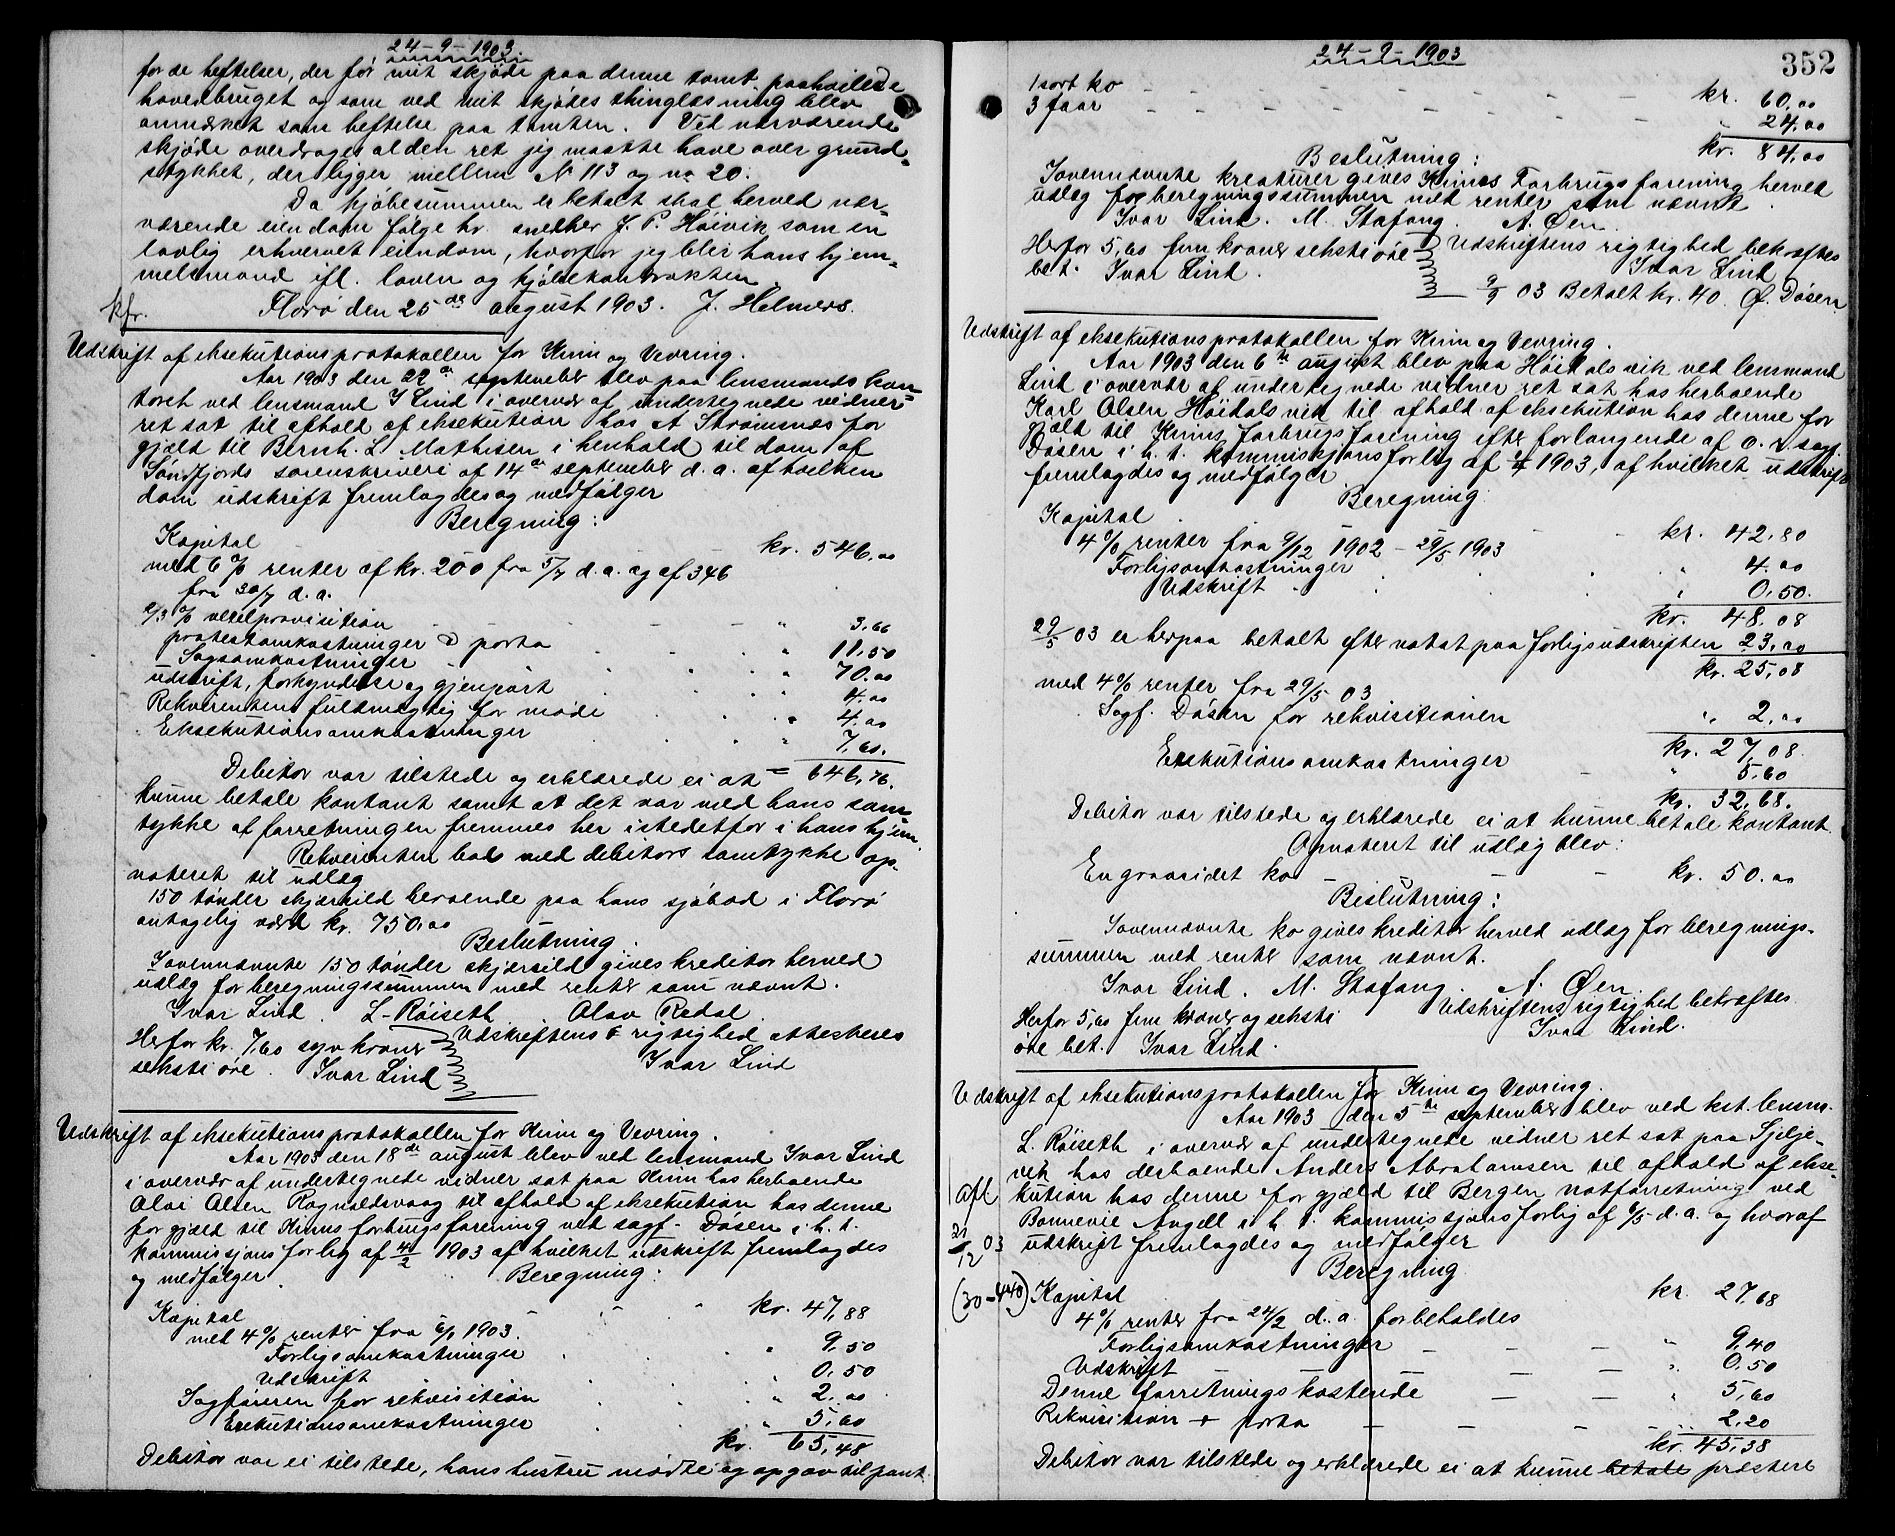 24-9-1903.
for de heftelser, der før mit skjøde paa denne tomt paahvilede
hovedbruget og som ved mit skjødes thinglæsning blev
anmerket som heftelse paa tomten. Ved nærværende
skjøde overdrages al den ret jeg maatte have over grund-
stykket, der ligger mellem No 113 og no 20.
Da kjøbesummen er betalt skal herved nær-
værende eiendom følge hr. snedker J. P. Høivik som en
lovlig erhvervet eiendom, hvorfor jeg blir hans hjem-
melsmand ifl. loven og kjøbekontrakten.
kfr. Florø den 25de august 1903. J. Helmers.
Udskrift af eksekutionsprotokollen for Kinn og Vevring.
Aar 1903 den 22de september blev paa lensmandskon-
toret ved lensmand I Lind i overvær af undertegnede vidner
ret sat til afhold af eksekution hos A Strømsnæs for
gjæld til Bernh. L Mathisen i henhold til dom af
Søndfjords sorenskriveri af 14de september d. a. af hvilken
dom udskrift fremlagdes og medfølger
Beregning:
Kapital kr. 546.00
med 6 % renter af kr. 200 fra 5/7 d. a. og af 346
fra 30/7 d. a.
2/3 % vexelprovision " 3.66
protestomkostninger & porto " 11.50
Sagsomkostninger " 70.00
udskrift, forkyndelse og gjenpart " 4.00
Rekvirentens fuldmægtig for møde " 4.00
Eksekutionsomkostninger " 7.60.
Debitor var tilstede og erklærede ei at = 646,76.
kunne betale kontant samt at det var med hans sam-
tykke at forretningen fremmes her istedetfor i hans hjem.
Rekvirenten lod med debitors samtykke op-
noteret til udlæg
150 tønder skjærsild beroende paa hans sjøbod i Florø
antagelig værd kr. 750.00
Beslutning.
Iovennævnte 150 tønder skjærsild gives kreditor herved
udlæg for beregningssummen med renter som nævnt.
Ivar Lind. L. Røiseth Olav Redal
Herfor kr. 7,60 syv kroner Udskriftens rigtighed attesteres
seksti øre. Ivar Lind Ivar Lind
Udskrift af eksekutionsprotokollen for Kinn og Vevring.
Aar 1903 den 18de august blev ved lensmand Ivar Lind
i overvær af undertegnede vidner sat paa Kinn hos herboende
Olai Olsen Rognaldsvaag til afhold af eksekution hos denne
for gjæld til Kinns forbrugsforening ved sagf. Døsen i h. t.
kommissjonsforlig af 1903 af hvilket udskrift fremlagdes
og medfølger. Beregning:
Kapital kr. 47,88
med 4% renter fra 1903.
Forligsomkostninger " 9.50
Udskrift " 0.50
Sagføreren for rekvisition " 2.00
Exekutionsomkostninger " 5.60
kr. 65,48
Debitor var ei tilstede, hans hustru mødte og opgav til pant
24-9-1903
352
1 sort ko kr. 60.00
3 faar " 24.00
kr. 84.00
Beslutning:
Iovennævnte kreaturer gives Kinns Forbrugsforening herved
udlæg for beregningssummen med renter som nævnt.
Ivar Lind. M. Stafang. A. Øen.
Herfor 5,60 fem kroner seksti øre Udskriftens rigtighed bekræftes
bet. Ivar Lind. Ivar Lind
9/9 03 Betalt kr. 40. Of. Døsen.
Udskrift af eksekutionsprotokollen for Kinn og Vevring.
Aar 1903 den 6te august blev paa Høidalsvik ved lensmand
Lind i overvær af undertegnede vidner ret sat hos herboende
Karl Olsen Høidalsvik til afhold af eksekution hos denne for
gjæld til Kinns forbrugsforening efter forlangende af o. r. sagf.
Døsen i h. t. kommissjonsforlig af 1903, af hvilket udskrift
fremlagdes og medfølger
Beregning.
Kapital kr. 42.80
4 % renter fra 9/12 1902 - 29/5 1903
Forligsomkostninger " 4.00
Udskrift " 0.50.
kr. 48.08
29/5 03 er herpaa betalt efter notat paa forligsudskriften 23.00
kr. 25,08
med 4% renter fra 29/5 03
Sagf. Døsen for rekvisitionen " 2.00
kr. 27,08.
Exekutionsomkostninger " 5.60
kr. 32,68.
Debitor var tilstede og erklærede ei at kunne betale kontant.
Opnoteret til udlæg blev:
En graasidet ko kr. 50.00
Beslutning:
Iovennævnte ko gives kreditor herved udlæg for beregnings-
summen med renter som nævnt.
Ivar Lind. M. Stafang. A. Øen.
Herfor 5,60 fem kroner og seksti Udskriftens rigtighed bekræftes
øre bet. Ivar Lind. Ivar Lind.
Udskrift af eksekutionsprotokollen for Kinn og Vevring.
Aar 1903 den 5te september blev ved kst. lensm.
L. Røiseth i overvær af undertegnede vidner ret sat paa Sjelje-
vik hos derboende Anders Abrahamsen til afhold af ekse-
kution hos denne for gjæld til Bergen notforretning ved
Bonnevie Angell i h. t. kommissjonsforlig af 6/5 d. a. og hvoraf
udskrift fremlagdes og medfølger
afl
21/12 03
(30-440)
Beregning
Kapital kr. 27,68
4% renter fra 24/2 d. a. forbeholdes
Forligsomkostninger " 9,40
Udskrift " 0.50
Denne forretnings kostende " 5,60
Rekvisition + porto " 2.20
kr. 45,38
Debitor var tilstede og erklærede ei at kunne betale præstere